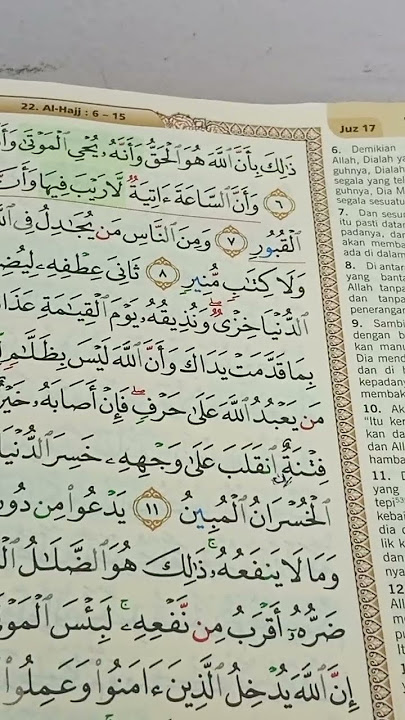 22. Al-Hajj : 6 – 15
Juz 17
ذَٰلِكَ بِأَنَّ ٱللَّهَ هُوَ ٱلْحَقُّ وَأَنَّهُۥ يُحْىِ ٱلْمَوْتَىٰ
٦ وَأَنَّ ٱلسَّاعَةَ ءَاتِيَةٌ لَّا رَيْبَ فِيهَا
ٱلْقُبُورِ ٧ وَمِنَ ٱلنَّاسِ مَن يُجَٰدِلُ فِى
وَلَا كِتَٰبٍ مُّنِيرٍ ٨ ثَانِىَ عِطْفِهِۦ
ٱلدُّنْيَا خِزْىٌ وَنُذِيقُهُۥ يَوْمَ ٱلْقِيَٰمَةِ
بِمَا قَدَّمَتْ يَدَاكَ وَأَنَّ ٱللَّهَ لَيْسَ بِظَلَّٰمٍ
مَن يَعْبُدُ ٱللَّهَ عَلَىٰ حَرْفٍ فَإِنْ أَصَابَهُۥ
فِتْنَةٌ ٱنقَلَبَ عَلَىٰ وَجْهِهِۦ خَسِرَ ٱلدُّنْيَا
ٱلْخُسْرَانُ ٱلْمُبِينُ ١١ يَدْعُوا۟ مِن
وَمَا لَا يَنفَعُهُۥ ذَٰلِكَ هُوَ ٱلضَّلَٰلُ
ضَرُّهُۥٓ أَقْرَبُ مِن نَّفْعِهِۦ لَبِئْسَ
إِنَّ ٱللَّهَ يُدْخِلُ ٱلَّذِينَ ءَامَنُوا۟ وَعَمِلُوا۟
6. Demikian
Allah, Dialah
guhnya, Dialah
segala yang
guhnya, Dia
segala sesuatu
7. Dan
itu pasti
padanya,
akan
ada di dalam
8. Di antara
yang
Allah tanpa
dan tanpa
penerangan
9.
dengan
kan
Dia
dan di
kepadanya
10.
"Itu
kan
dan
hamba
11.
yang
tepi
dia
lik
dan
nya
12